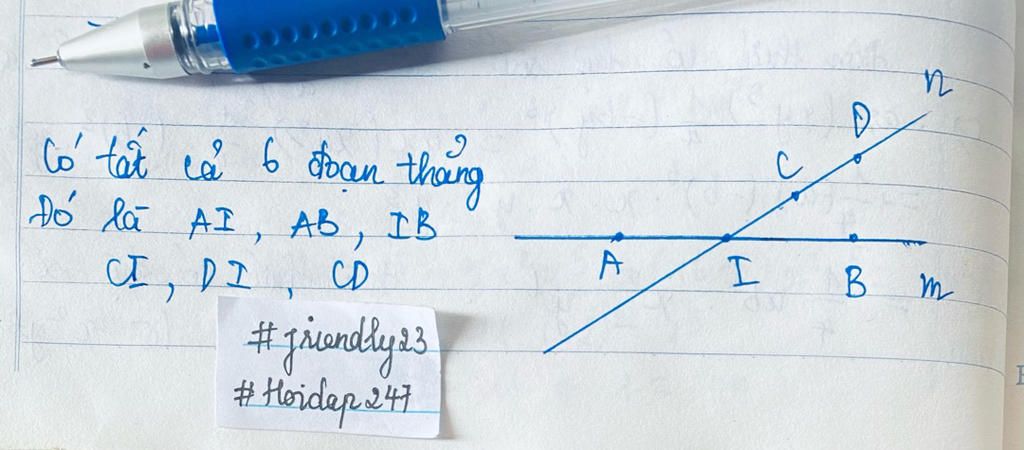 Có tất cả 6 đoạn thẳng
Đó là AI, AB, IB
CI, DI, CD
#friendly23
#Hoidap247
n
D
C
A
I
B
m